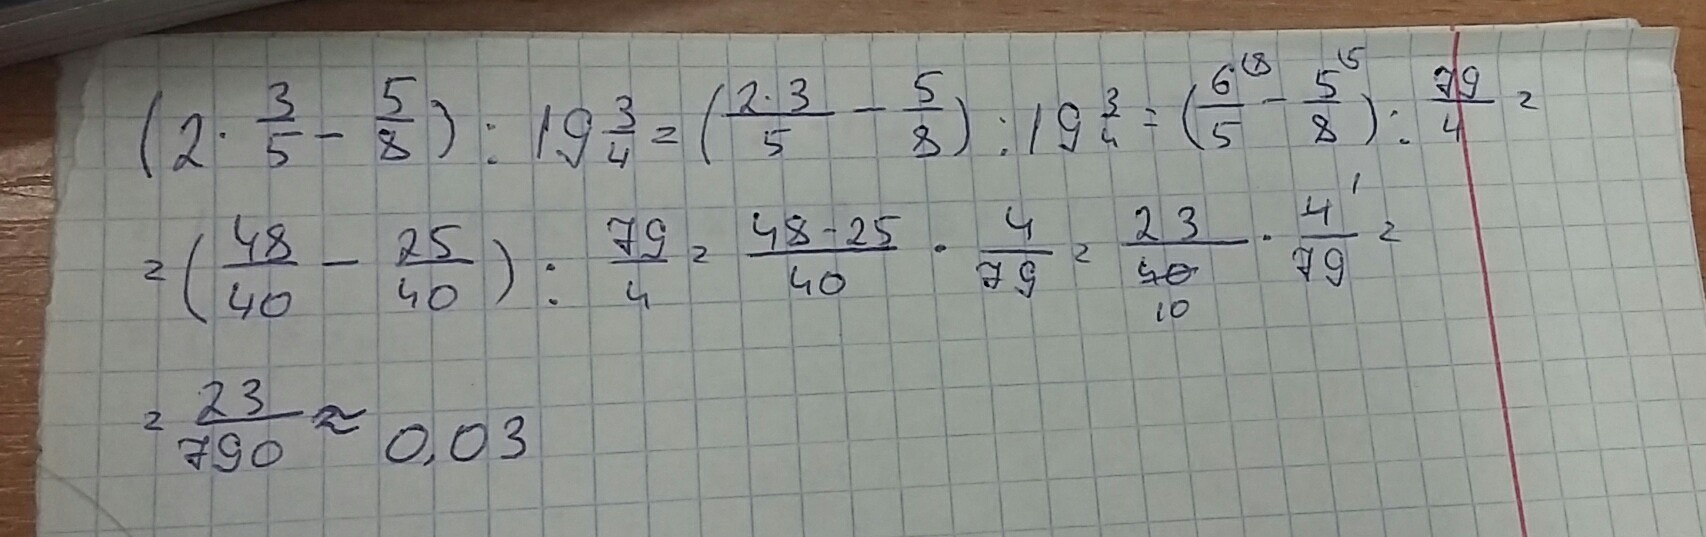 (2 · 3/5 - 5/8) : 19 3/4 = (2·3/5 - 5/8) : 19 3/4 = (6/5 (8 - 5/8 (5) : 79/4 =
= (48/40 - 25/40) : 79/4 = 48-25/40 · 4/79 = 23/40 10 · 4/79 1 =
= 23/790 ≈ 0,03